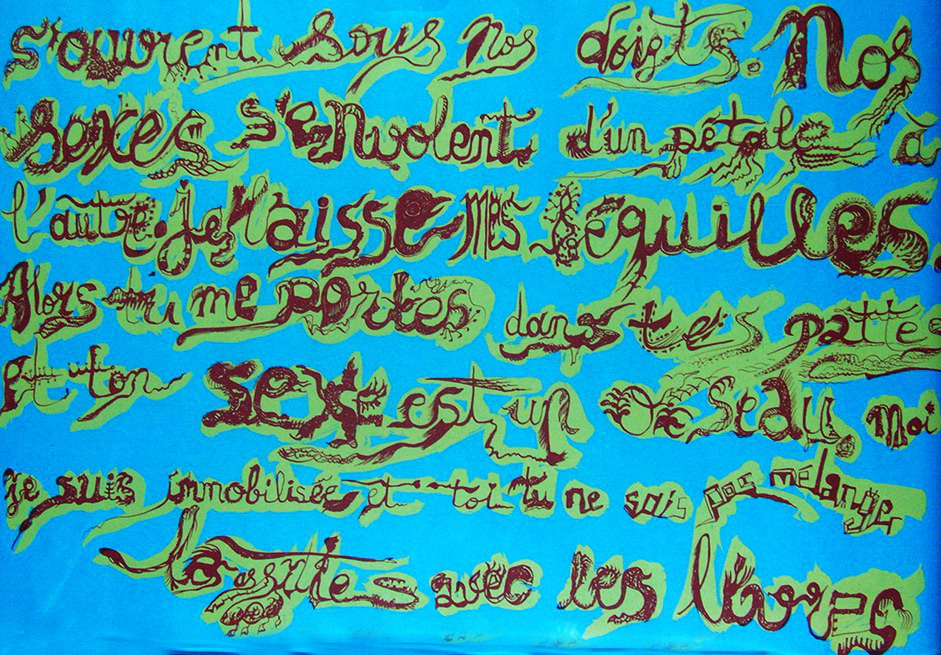 s'ouvrent sous nos doigts. Nos
sexes s'envolent d'un pétale à
l'autre. je laisse mes béquilles.
Alors tu me portes dans tes pattes
Et ton sexe est un oiseau, moi
je suis immobilisée et toi tu ne sais pas mélanger
la avec les lèvres